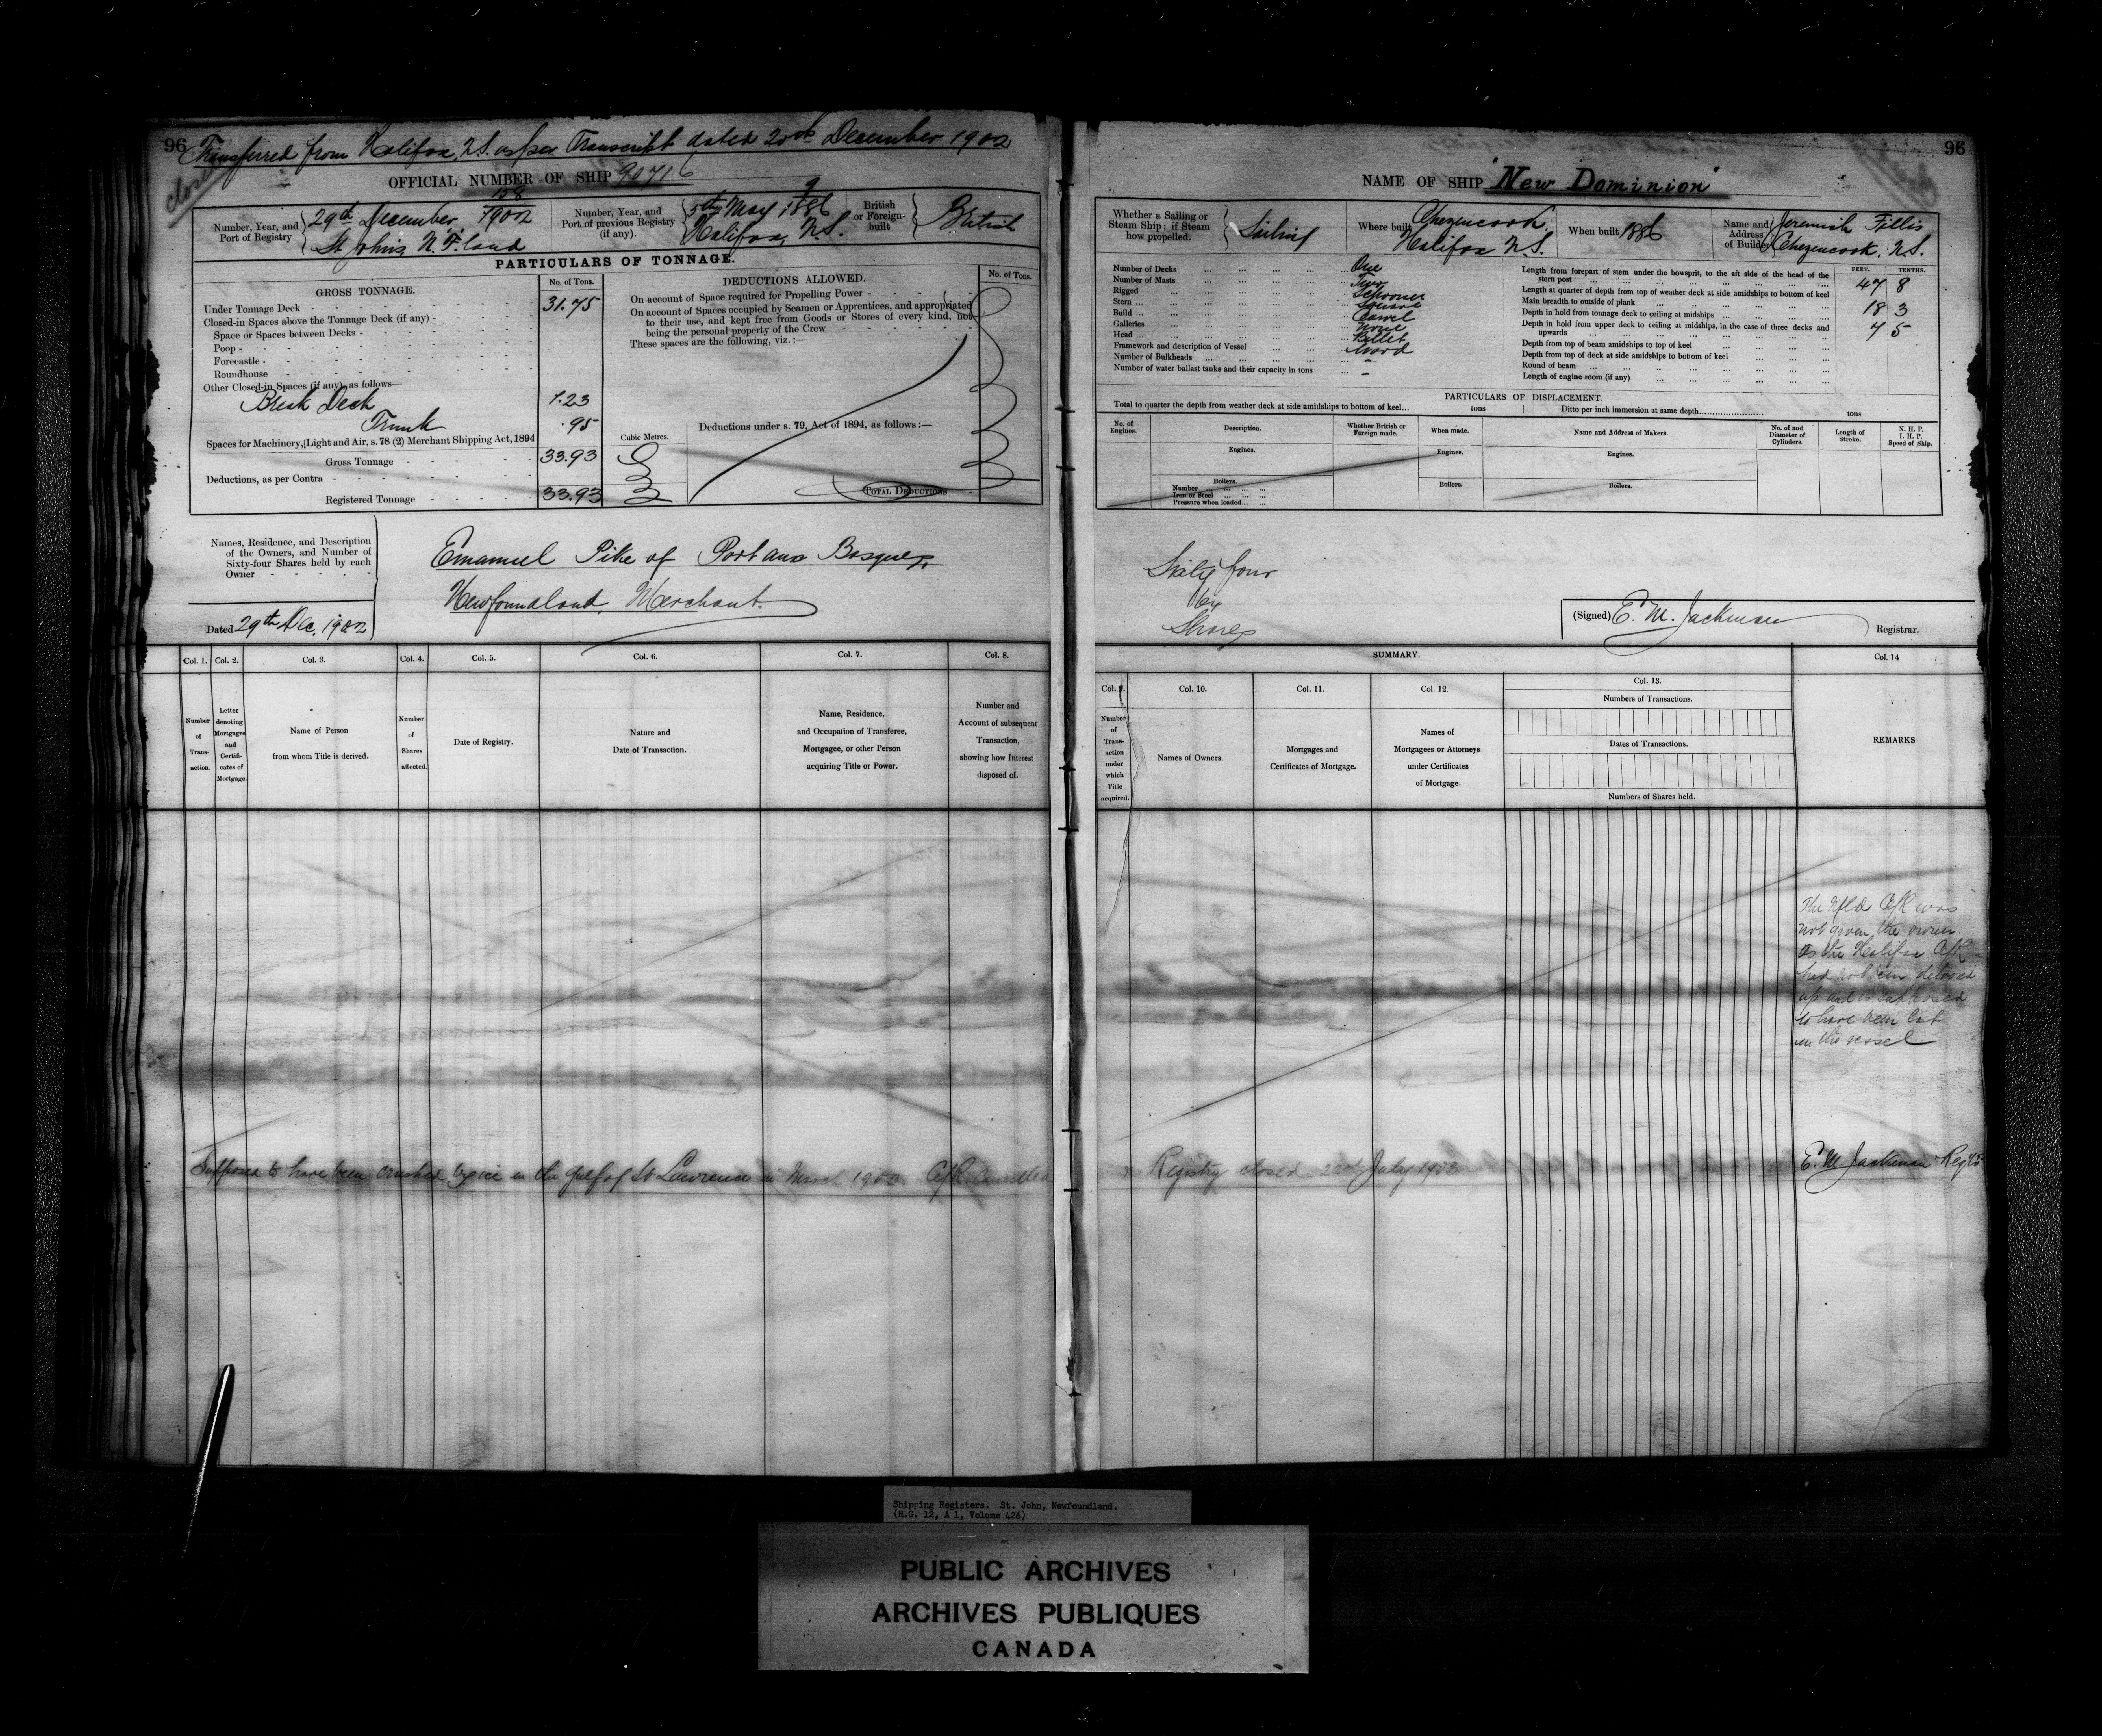 96
Transferred from Halifax, N.S. as per Transcript dated 20th December 1902
closed
OFFICIAL NUMBER OF SHIP 90716
Number, Year, and Port of Registry
158/1902
29th December,
St John's N.F.land
Number, Year, and Port of previous Registry (if any).
9/1886
5th May
Halifax, N.S.
British or Foreign-built
British
PARTICULARS OF TONNAGE.
GROSS TONNAGE.
No. of Tons.
Under Tonnage Deck 31.75
Closed-in Spaces above the Tonnage Deck (if any)
Space or Spaces between Decks
Poop
Forecastle
Roundhouse
Other Closed-in Spaces (if any), as follows—
Break Deck 1.23
Trunk .95
Spaces for Machinery, Light and Air, s. 78 (2) Merchant Shipping Act, 1894
Gross Tonnage 33.93
Deductions, as per Contra
Registered Tonnage 33.93
Cubic Metres.
DEDUCTIONS ALLOWED.
No. of Tons.
On account of Space required for Propelling Power
On account of Spaces occupied by Seamen or Apprentices, and appropriated
to their use, and kept free from Goods or Stores of every kind, not
being the personal property of the Crew
These spaces are the following, viz.:—
Deductions under s. 79, Act of 1894, as follows:—
TOTAL DEDUCTIONS
Names, Residence, and Description
of the Owners, and Number of
Sixty-four Shares held by each
Owner
Dated 29th Dec. 1902
Emanuel Pike of Port aux Basques,
Newfoundland, Merchant.
Col. 1. Col. 2. Col. 3. Col. 4. Col. 5. Col. 6. Col. 7. Col. 8.
Number of Transaction.
Letter denoting Mortgages and Certificates of Mortgage.
Name of Person from whom Title is derived.
Number of Shares affected.
Date of Registry.
Nature and Date of Transaction.
Name, Residence, and Occupation of Transferee, Mortgagee, or other Person acquiring Title or Power.
Number and Account of subsequent Transaction, showing how Interest disposed of.
Supposed to have been crushed by ice in the Gulf of St Lawrence in March 190 C/R Cancelled
96
NAME OF SHIP "New Dominion"
Whether a Sailing or Steam Ship; if Steam how propelled.
Sailing
Where built
Chezencook,
Halifax N.S.
When built 1886
Name and Address of Builder
Jeremiah Fillis
Chezencook, N.S.
Number of Decks One
Number of Masts Two
Rigged Schooner
Stern Square
Build Carvel
Galleries None
Head Billet
Framework and description of Vessel Wood
Number of Bulkheads -
Number of water ballast tanks and their capacity in tons -
FEET. TENTHS.
Length from forepart of stem under the bowsprit, to the aft side of the head of the
stern post 47 8
Length at quarter of depth from top of weather deck at side amidships to bottom of keel
Main breadth to outside of plank 18 3
Depth in hold from tonnage deck to ceiling at midships 7 5
Depth in hold from upper deck to ceiling at midships, in the case of three decks and
upwards
Depth from top of beam amidships to top of keel
Depth from top of deck at side amidships to bottom of keel
Round of beam
Length of engine room (if any)
PARTICULARS OF DISPLACEMENT.
Total to quarter the depth from weather deck at side amidships to bottom of keel... tons
Ditto per inch immersion at same depth tons
No. of Engines.
Description.
Whether British or Foreign made.
When made.
Name and Address of Makers.
No. of and Diameter of Cylinders.
Length of Stroke.
N. H. P. I. H. P. Speed of Ship.
Engines. Engines. Engines.
Boilers. Boilers. Boilers.
Number
Iron or Steel
Pressure when loaded
Sixty four
Shares
(Signed) E. M. Jackman
Registrar.
SUMMARY.
Col. 9. Col. 10. Col. 11. Col. 12. Col. 13. Col. 14
Number of Transaction under which Title acquired.
Names of Owners.
Mortgages and Certificates of Mortgage.
Names of Mortgagees or Attorneys under Certificates of Mortgage.
Numbers of Transactions.
Dates of Transactions.
Numbers of Shares held.
REMARKS
The Nfld C/R was
not given the owner
as the Halifax C/R
had not been delivered
up and is supposed
to have been lost
in the vessel
Registry closed July 1903
E. M. Jackman
Shipping Registers. St. John, Newfoundland.
(R.G. 12, A 1, Volume 426)
PUBLIC ARCHIVES
ARCHIVES PUBLIQUES
CANADA